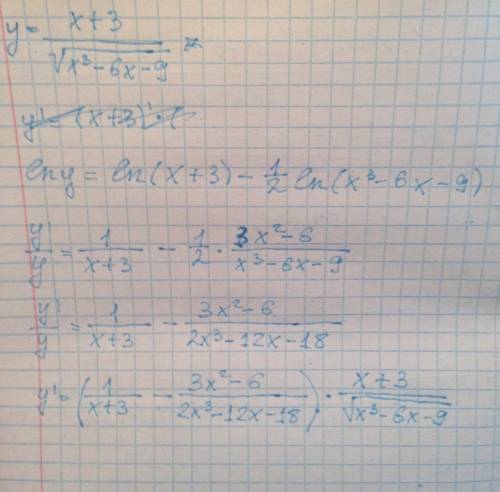 y = \frac{x+3}{\sqrt{x^3-6x-9}}
y' = (x+3)' · (
ln y = ln(x+3) - \frac{1}{2} ln(x^3-6x-9)
\frac{y'}{y} = \frac{1}{x+3} - \frac{1}{2} · \frac{3x^2-6}{x^3-6x-9}
\frac{y'}{y} = \frac{1}{x+3} - \frac{3x^2-6}{2x^3-12x-18}
y' = (\frac{1}{x+3} - \frac{3x^2-6}{2x^3-12x-18}) · \frac{x+3}{\sqrt{x^3-6x-9}}